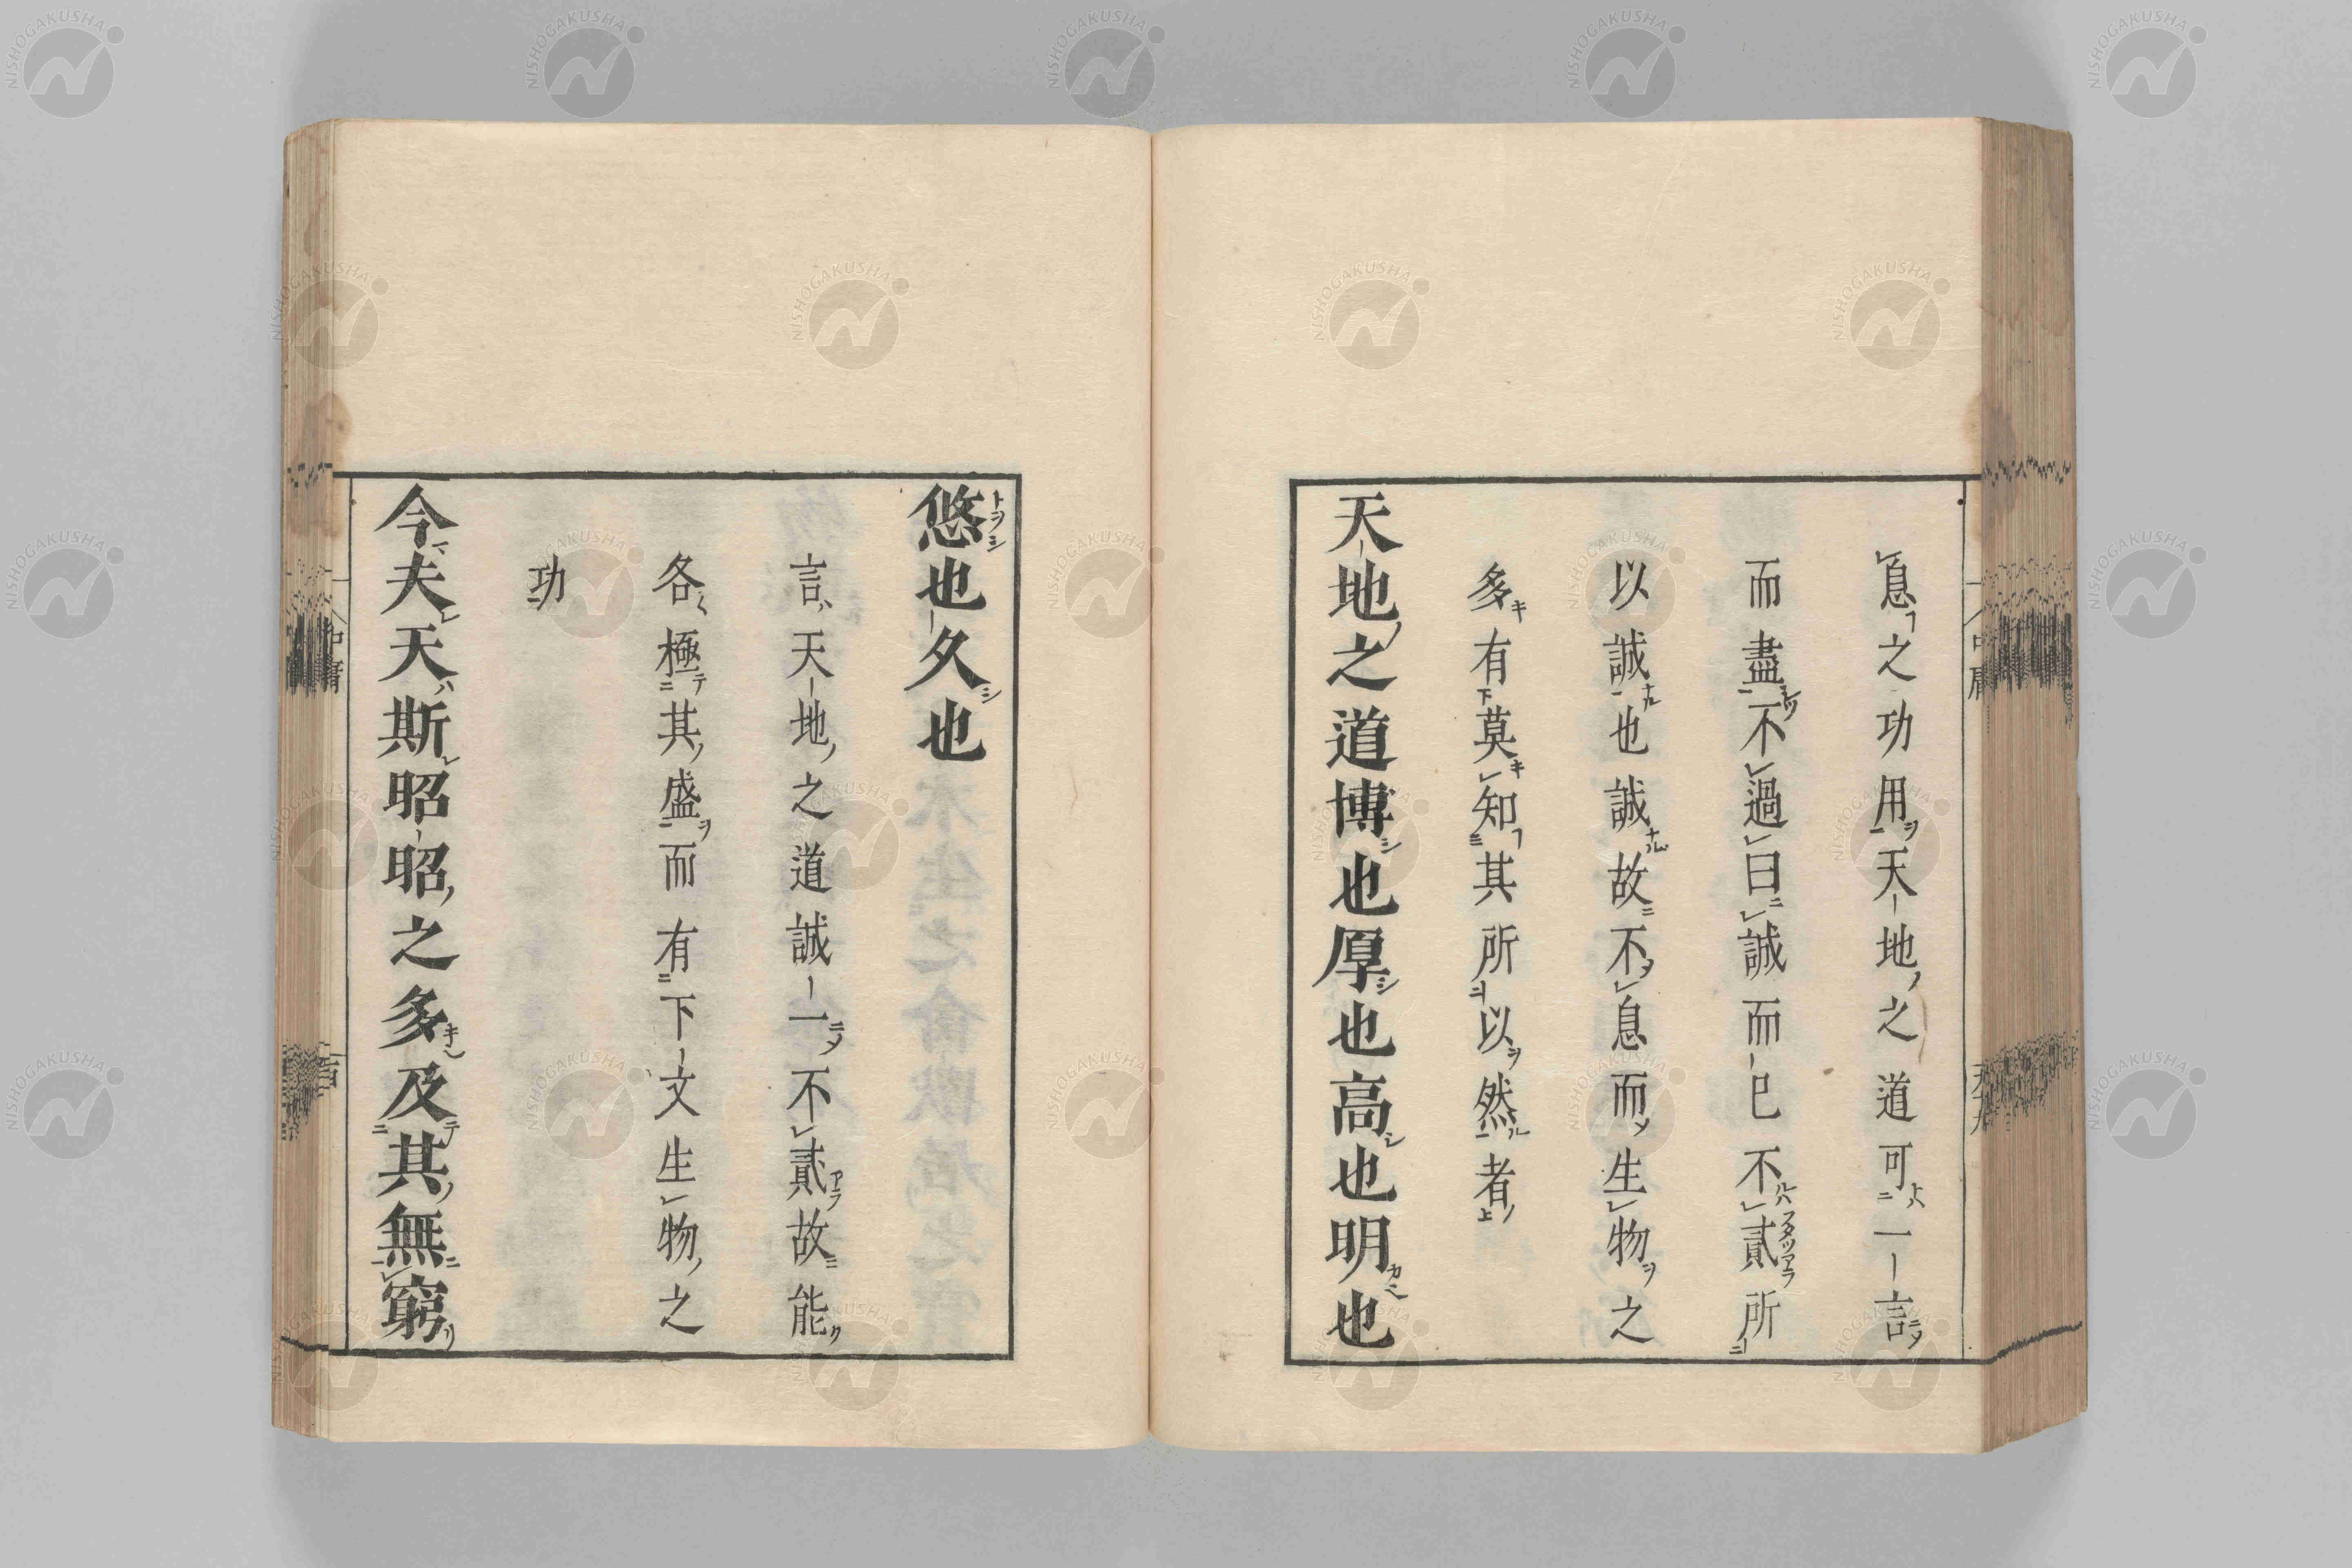 息之功用天地之道可一言
而盡不過曰誠而已不貳所
以誠也誠故不息而生物之
多有莫知其所以然者
天地之道博也厚也高也明也
悠也久也
言天地之道誠一不貳故能
各極其盛而有下文生物之
功
今夫天斯昭昭之多及其無窮
NISHOGAKUSHA